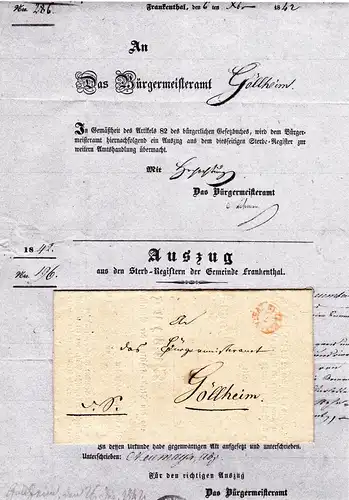 Nro. 286. Frankenthal, den 6 ten Xbr 1842
An
Das Bürgermeisteramt Göllheim.
In Gemäßheit des Artikels 82 des bürgerlichen Gesetzbuches, wird dem Bürger-
meisteramt hiernachfolgend ein Auszug aus dem diesseitigen Sterb-Register zur
weitern Amtshandlung übermacht.
Mit Hochachtung
Das Bürgermeisteramt
1842.
Auszug
Nro. 196. aus den Sterb-Registern der Gemeinde Frankenthal.
An
das Bürgermeisteramt
Göllheim.
D. S.
Zu deren Urkunde habe gegenwärtigen Akt aufgesetzt und unterschrieben.
Unterschrieben:
Für den richtigen Auszug
Das Bürgermeisteramt